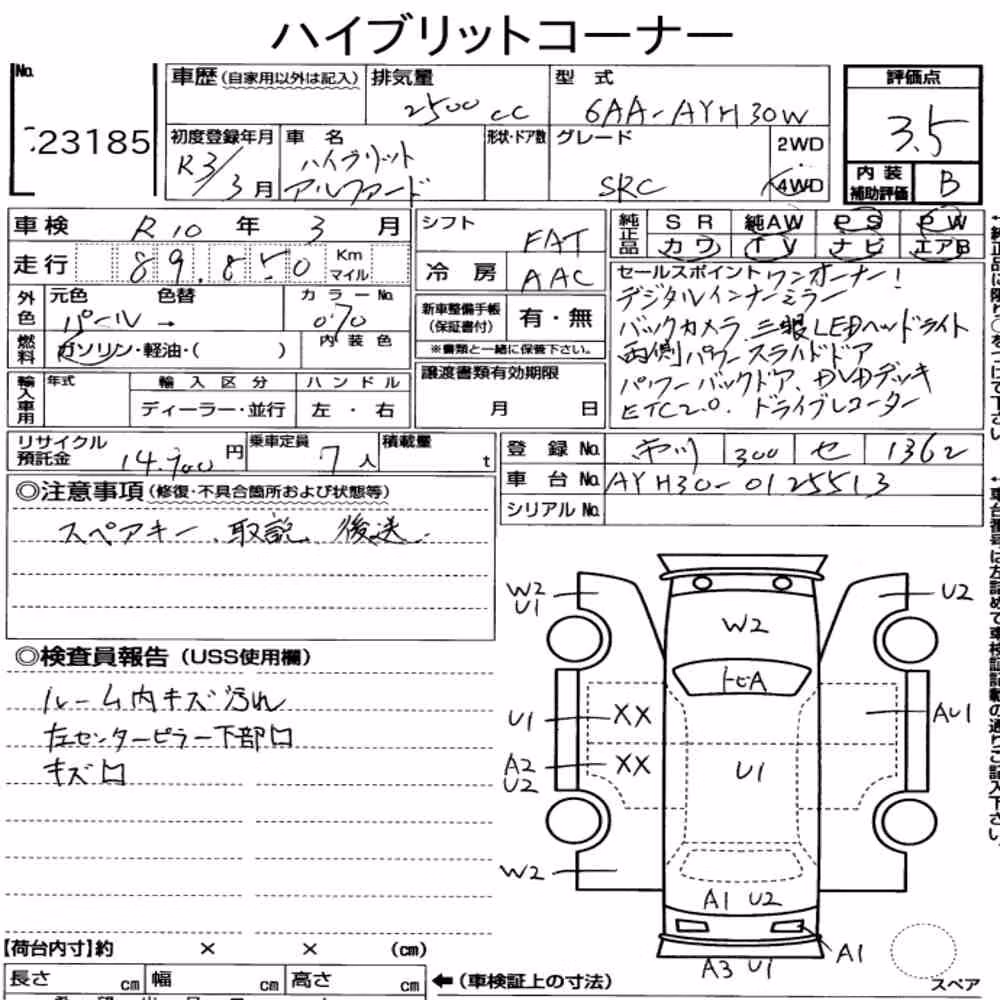 ハイブリットコーナー
No.
23185
車歴(自家用以外は記入)
排気量
2500cc
型 式
6AA-AYH30W
評価点
3.5
初度登録年月
R3/3月
車 名
ハイブリット
アルファード
形状・ドア数
グレード
SRC
2WD
4WD
内 装
補助評価
B
車検 R10 年 3 月
走行 89.850 Km マイル
外色
元色 色替
パール →
カラーNo.
070
内装色
燃料
ガソリン・軽油・( )
輸入車用
年式
輸入区分
ディーラー・並行
ハンドル
左・右
シフト
FAT
冷 房
AAC
新車整備手帳
(保証書付)
有・無
※書類と一緒に保管下さい。
譲渡書類有効期限
月 日
純正品
SR 純AW PS PW
カワ TV ナビ エアB
セールスポイント ワンオーナー!
デジタルインナーミラー
バックカメラ 三眼LEDヘッドライト
両側パワースライドドア
パワーバックドア、DVDデッキ
ETC2.0. ドライブレコーダー
リサイクル
預託金
14.900円
乗車定員
7人
積載量
t
登 録 No.
300 セ 1362
車 台 No.
AYH30-0125513
シリアル No.
◎注意事項(修復・不具合箇所および状態等)
スペアキー、取説、後送.
◎検査員報告(USS使用欄)
ルーム内キズ汚れ
左センターピラー下部凹
キズ凹
W2
U1
U2
W2
トビA
U1
XX
AU1
A2
U2
XX
U1
W2
A1 U2
A1
A3 U1
スペア
【荷台内寸】約 × × (cm)
長さ cm 幅 cm 高さ cm
←(車検証上の寸法)
←純正品に限り○をつけて下さい。
←車台番号は左詰めで車検証記載の通りご記入下さい。